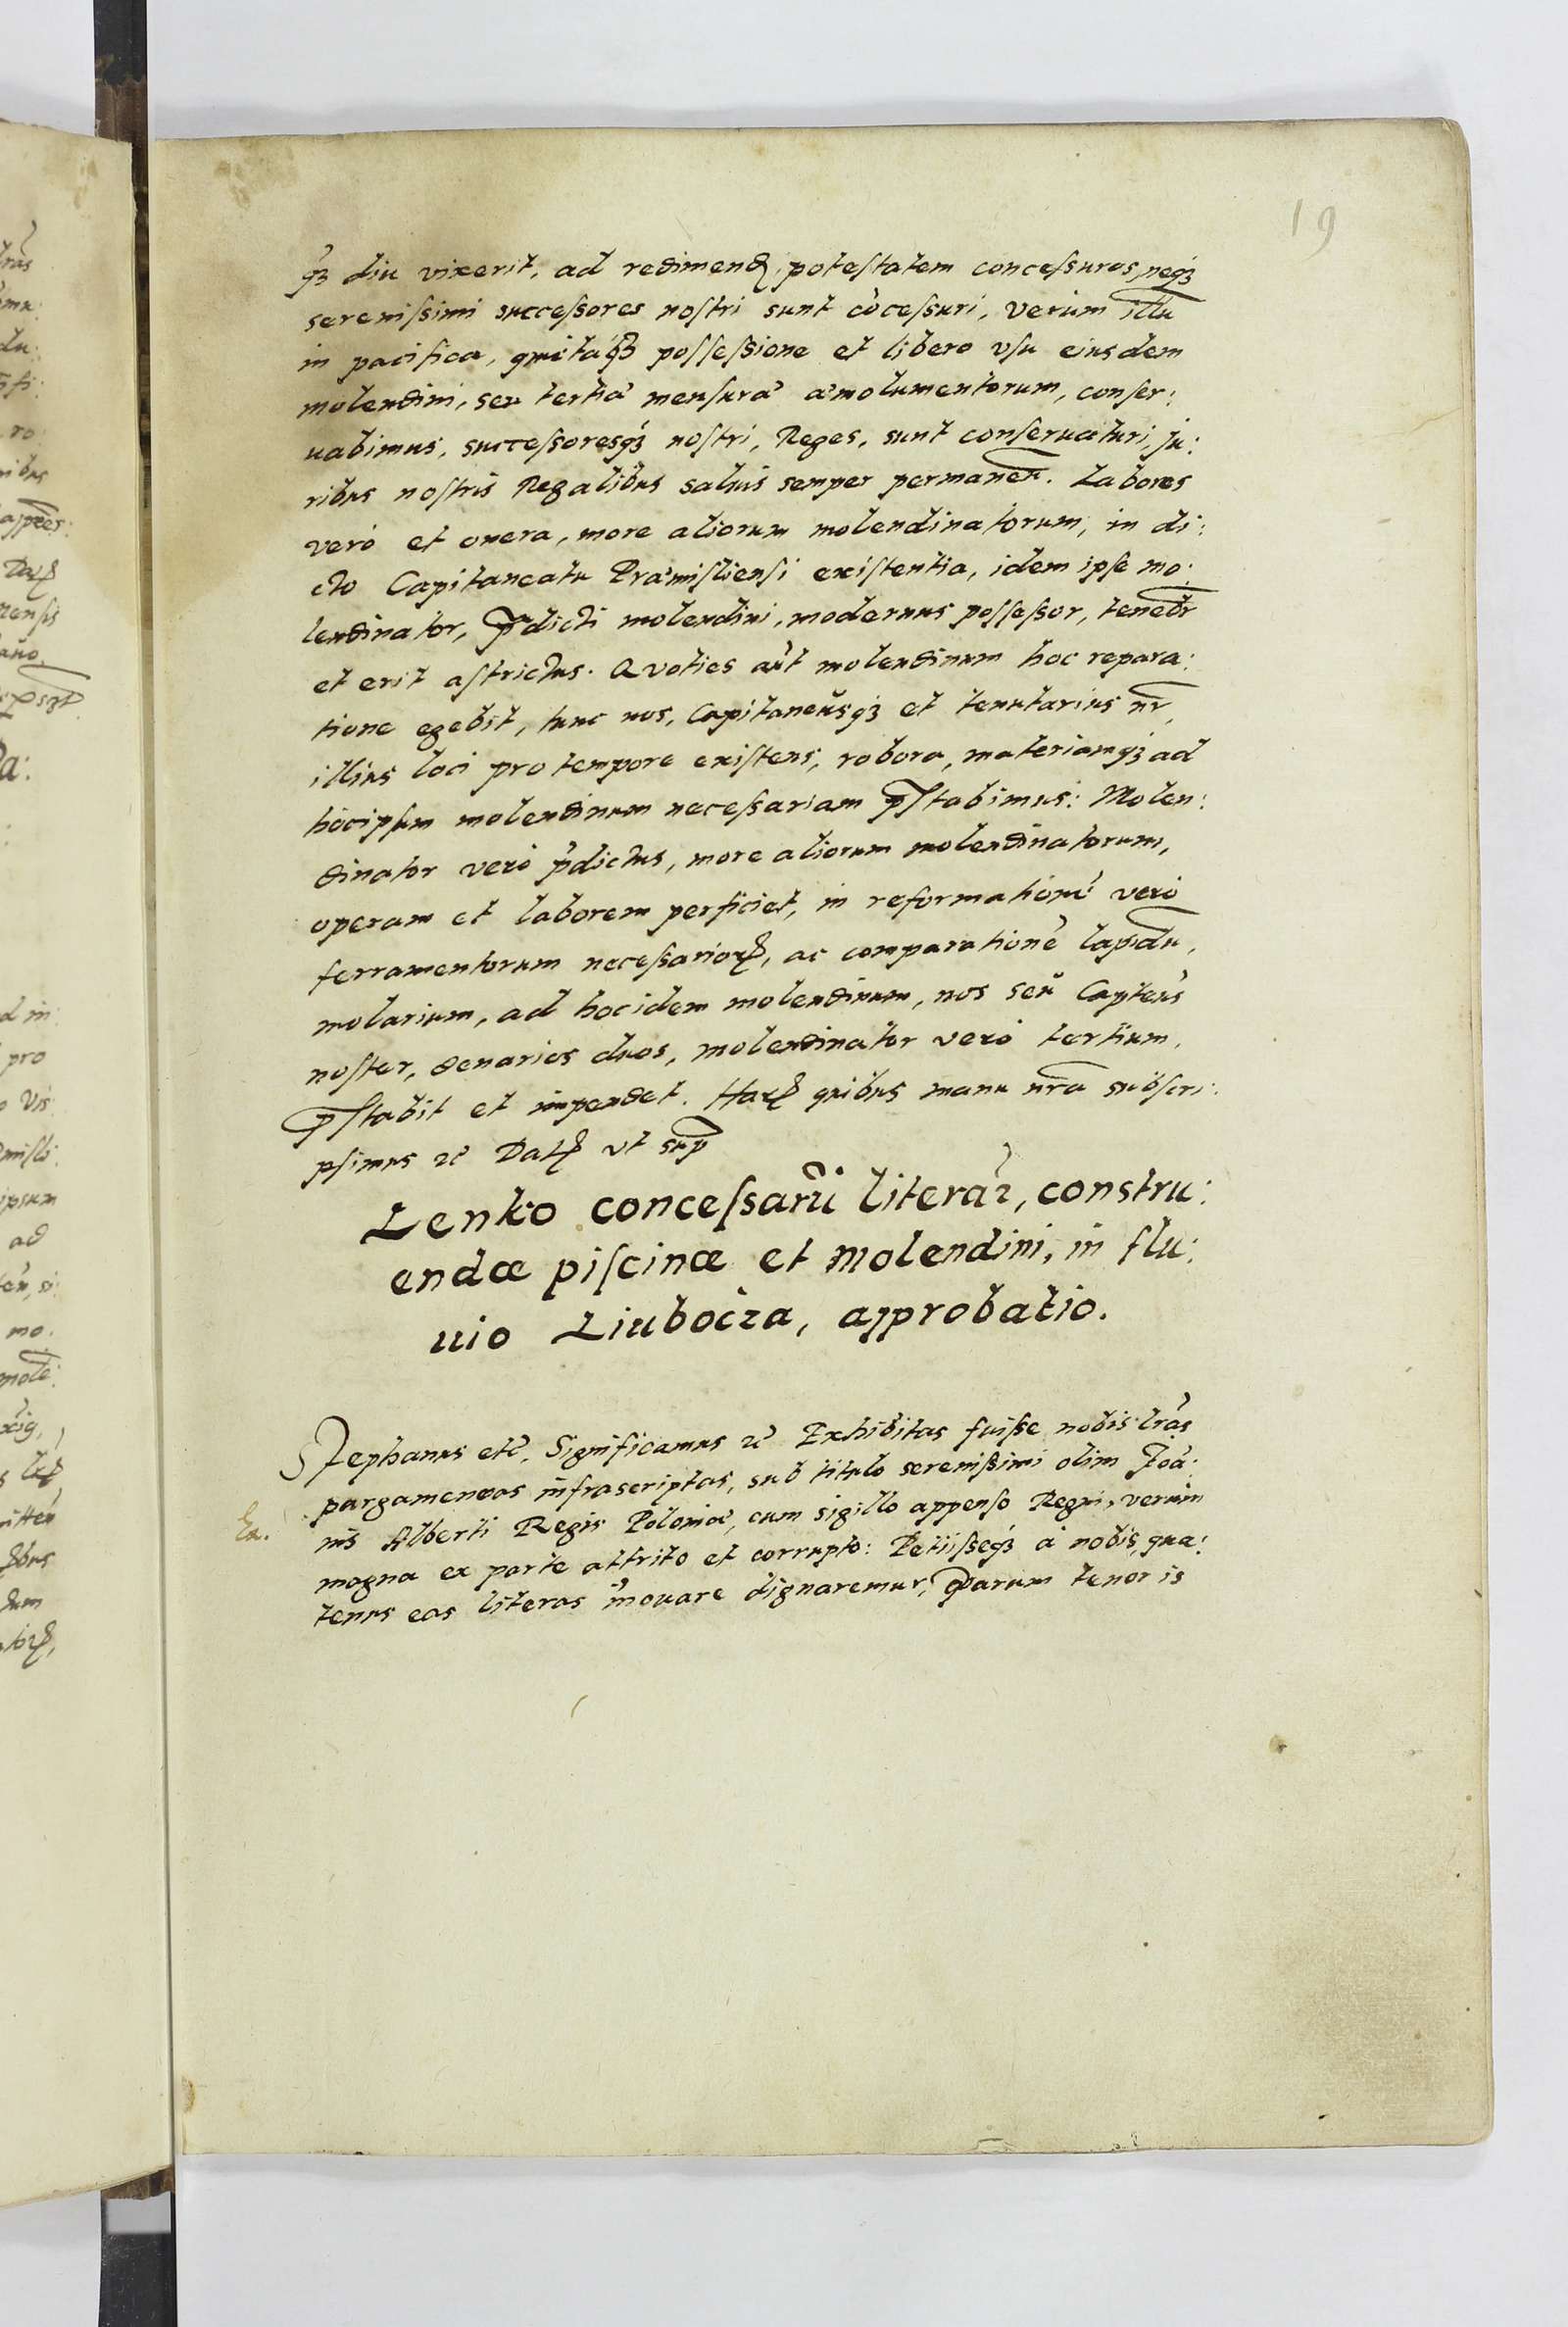 19
q̃ꝫ diu vixerit, ad redimend potestatem concessuros, neq́ꝫ
serenissimi successores nostri sunt cõcessuri, verùm illũ
in pacifica, quietaq́ꝫ possessione et libero vsu eiusdem
molendini, seu tertia mensura æmolumentorum, conser:
uabimus, successoresq́ꝫ nostri, Reges, sunt conseruaturi, Ju:
ribus nostris Regalibus saluis semper permaneñ. Labores
verò et onera, more aliorum molendinatorum, in di:
cto Capitaneatu Præmisliensi existentia, idem ipse mo:
lendinator, p̃dicti molendini, modernus possessor, tenebr̃
et erit astrictus. Quoties aũt molendinum hoc repara:
tione egebit, tunc nos, Capitaneusq́ꝫ et tenutarius nr̃,
illius loci pro tempore existens, robora, materiamq́ꝫ ad
hocipsum molendinum necessariam p̃stabimus: Molen:
dinator verò p̃dictus, more aliorum molendinatorum,
operam et laborem perficiet, in reformationẽ verò
ferramentorum necessarioꝝ, ac comparationẽ lapidũ,
molarium, ad hoc idem molendinum, nos seu Capteus
noster, denarios duos, molendinator verò tertium,
p̃stabit et impendet. Haꝝ quibus manu nr̃a subscri:
psimus ꝛc̃ Datꝭ vt sup̃
Lenko concessarũ literar, constru:
endæ piscinæ et Molendini, in flu:
uio Liubocza, approbatio.
Stephanus etc̃, Significamus ꝛc̃ Exhibitas fuisse nobis lr̃as
pargameneas infrascriptas, sub titulo serenissimi olim Joã:
nis Alberti Regis Poloniæ, cum sigillo appenso Regni, verùm
magna ex parte attrito et corrupto: Petiisseq́ꝫ à nobis, qua:
tenus eas literas innouare dignaremur, Quarum tenor is
Ex.